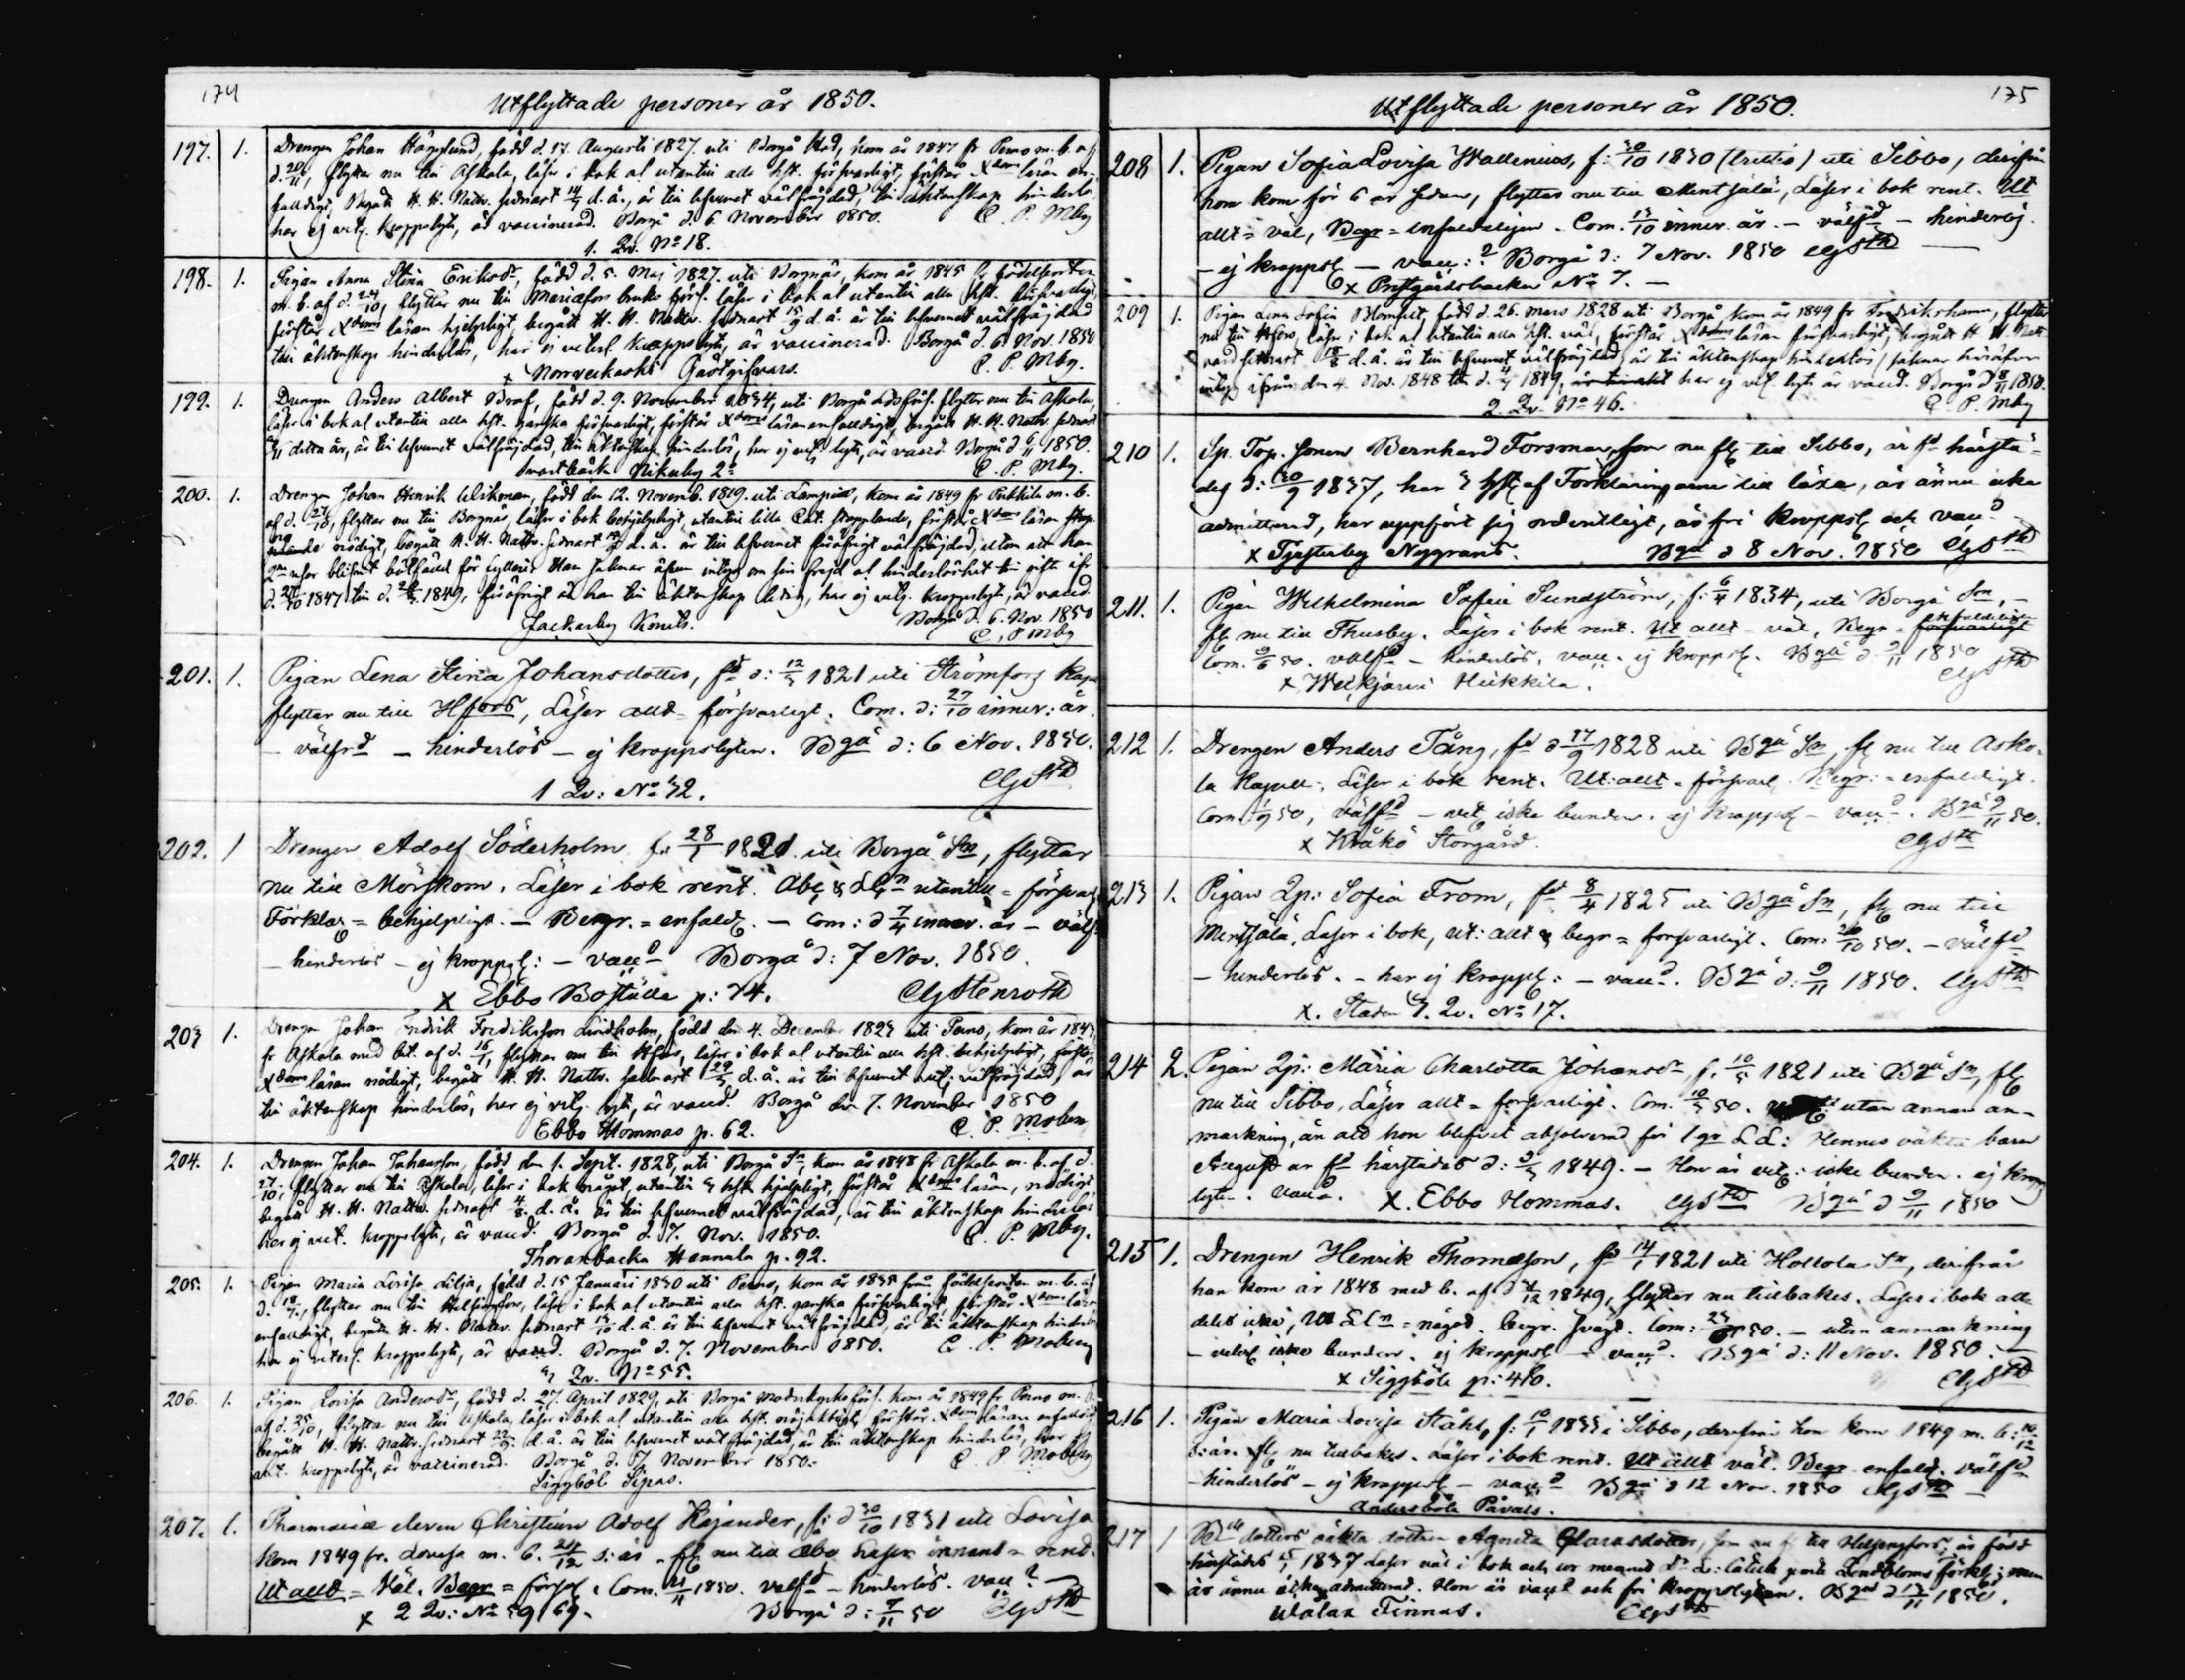 174
Utflyttade personer år 1850.
197. 1. Drengen Johan Hägglund, född d. 17. Augusti 1827. uti Borgå stad, kom år 1847 fr Perno m. b. af
d. 20/11, flyttar nu till Askola, läser i bok al utantill alla hst. försvarligt, förstår Xdoms läran en-
faldigt, begått H. H. Nattv. sednast 14/7 d. å., är till lefvernet välfräjdad, till äktenskap hinderlös
har ej vetl. kroppslyte, är vaccinerad. Borgå d. 6 November 1850. C. P. Mbg
1. Qv. No 18.
198. 1. Pigan Anna Stina Eriksdr, född d. 5. Maj 1827. uti Borgnäs, kom år 1845 fr födelseorten
m. b. af d. 24/10, flyttar nu till Mariæfors bruks förs. läser i bok al utantill alla hst. försvarligt,
förstår Xdoms läran hjelpligt, begått H. H. Nattv. sednast 15/9 d. å. är till lefvernet välfräjdad
till äktenskap hinderlös, har ej veterl. kroppslyte, är vaccinerad. Borgå d. 6. Nov. 1850
x Norrveckoski Gästgifvars. C. P. Mbg.
199. 1. Drengen Anders Albert Graf, född d. 9. November 1834, uti Borgå Ldsförs. flyttar nu till Askola,
läser i bok al utantill alla hst. ganska försvarligt, förstår Xdoms läran enfaldigt, begått H. H. Nattv. sednast
detta år, är till lefvernet välfräjdad, till äktenskap hinderlös, har ej vetl. lyte, är vaccd. Borgå d 6/11 1850.
Svartbäck Nikuby 2: C. P. Mbg.
200. 1. Drengen Johan Henrik Wikman, född den 12. Novemb. 1819. uti Lampis, kom år 1849 fr Pukkila m. b.
af d. 27/10, flyttar nu till Borgnäs, läser i bok behjelpligt, utantill lilla Cat. stapplande, förstår Xdoms läran
nödigt, begått H. H. Nattv. sednast d. å. är till lefvernet försöfrigt välfräjdad, utom att han
2ne resor blifvit bötfälld för fylleri. Han saknar äfven intyg om sin frejd al hinderlöshet till gifte ifr.
d. 1847 till d. 1849, försöfrigt är han till äktenskap ledig, har ej vetl. kroppslyte, är vaccd.
Jackarby Könis. Borgå d. 6. Nov. 1850
C. P Mbg
201. 1. Pigan Lena Stina Johansdotter, fd d: 12/5 1821 uti Strömfors Kapell
flyttar nu till Hfors, Läser allt = försvarligt. Com. d: 27/10 innev: år.
– välfrd – hinderlös – ej kroppslyten. Bgå d: 6 Nov. 1850.
1 Qv: No 32. CGSth
202. 1 Drengen Adolf Söderholm f: 28/1 1821 uti Borgå Sn, flyttar
nu till Mörskom. Läser i bok rent. Abc & LCn utantill = försvarl
Förklar = behjelpligt. – Begr. = enfaldg. – Com: d 7/4 innev. år – välfd
– hinderlös – ej kroppsl: – vaccd Borgå d: 7 Nov. 1850.
x Ebbo Boställe p: 74. CGStenroth
203 1. Drengen Johan Fredrik Fredriksson Lindholm, född den 4. December 1823 uti Perno, kom år 1843
fr Askola med bet. af d. 16/1, flyttar nu till Hfors, läser i bok al utantill alla hst. behjelpligt, förstår
Xdoms läran nödigt, begått H. H. Nattv. sednast 29/5 d. å. är till lefvernet vetl. välfräjdad, är
till äktenskap hinderlös, har ej vetl. lyte, är vaccd. Borgå den 7. November 1850
Ebbo Hommas p. 62. C. P. Moberg
204. 1. Drengen Johan Johansson, född den 1. Sept. 1828, uti Borgå Sn, kom år 1848 fr Askola m. b. af d.
27/10, flyttar nu till Askola, läser i bok något, utantill 5 hst. hjelpligt, förstår Xdoms läran, nödigt
begått H. H. Nattv. sednast 4/8 d. å. är till lefvernet välfräjdad, är till äktenskap hinderlös
har ej vet. kroppslyte, är vaccd. Borgå d. 7. Nov. 1850. C. P. Mbg.
Thorasbacka Hannula p. 92.
205. 1. Pigan Maria Lovisa Lilja, född d. 15 Januari 1830 uti Perno, kom år 1835 från födelseorten m. b. af
d. flyttar nu till Helsingfors, läser i bok al utantill alla hst. ganska försvarligt, förstår Xdoms läran
enfaldigt, begått H. H. Nattv. sednast 13/10 d. å. är till lefvernet välfräjdad, är till äktenskap hinderlös
har ej veterl. kroppslyte, är vaccd. Borgå d. 7. November 1850. C. P. Moberg
3 Qv. No 55.
206. 1. Pigan Lovisa Andersdr, född d. 27 April 1829, uti Borgå moderkyrkoförs. kom år 1849 fr Perno m. b.
af d. 25/10, flyttar nu till Askola, läser i bok al utantill alla hst. nöjaktigt, förstår Xdoms läran enfaldigt
begått H. H. Nattv. sednast 22/9 d. å. är till lefvernet välfräjdad, är till äktenskap hinderlös, har ej
vet. kroppslyte, är vaccinerad. Borgå d. 7 November 1850. C. P Moberg
Siggböl Sigas.
207. 1. Pharmaciæ eleven Christian Adolf Kajander, f: d 30/10 1831 uti Lovisa
kom 1849 fr. Lovisa m. b. 21/12 s: år – fl nu till Åbo Läser innant = rent.
Ut allt = Väl. Begr = försvl. Com. 1850. välfd – hinderlös. vacc?
x 2 Qv: No 59 169. Borgå d: 7/11 50 CGSth
175
Utflyttade personer år 1850.
208 1. Pigan Sofia Lovisa Wallenius, f: 30/10 1830 (trettio) uti Sibbo, derifrån
hon kom för 6 år sedan, flyttar nu till Mentsälä, Läser i bok rent. Ut
allt = väl, Begr = enfaldeligen. Com. 13/10 innev. år. – välfd – hinderlös.
– ej kroppsl – vacc:? Borgå d: 7 Nov. 1850 CGSth
x Prestgårdsbacken No 7. –
209 1. Pigan Lena Sofia Blomqvist, född d. 26. mars 1828 uti Borgå kom år 1849 fr Fredrikshamn, flyttar
nu till Hfors, läser i bok al utantill alla hst. väl, förstår Xdoms läran försvarligt, begått H H Natt-
vard sednast 18/8 d. å. är till lefvernet välfräjdad, är till äktenskap hinderlös/ saknar härå
intyg ifrån den 4. Nov. 1848 till d. 1849, har ej vetl. lyte är vaccd. Borgå d 8/11 1850.
2 Qv. No 46. C. P. Mbg
210 1. Sp. Torp. sonen Bernhard Forsman, som nu fl till Sibbo, är fd härstä-
des d: 20/9 1837, har 3 hst af Förklaringarne till läxa, är ännu icke
admitterad, har uppfört sig ordentligt, är fri kroppsl och vaccd
x Tjusterby Nygrans. Bgå d 8 Nov. 1850 CGSth
211. 1. Pigan Wilhelmina Sofia Sundström, f: 6/4 1834, uti Borgå Sn, –
fl nu till Thusby. Läser i bok rent. Ut allt – väl, Begr =
Com. 9/6 50. välfd – hinderlös. vacc. ej kroppsl. Bgå d 9/11 1850
x Weckjärvi Heikkilä. CGSth
212 1. Drengen Anders Tång, fd d 17/9 1828 uti Bgå Sn, fl nu till Asko-
la Kapell. Läser i bok rent. Ut: allt = försvarl. Begr: = enfaldigt.
Com. 50, välfd – vetl icke bunden. ej kroppsl – vaccd. Bgå 9/11 50.
x Kråkö Storgård. CGSth
213 1. Pigan Qp: Sofia From, fd 8/4 1825 uti Bgå Sn, fl nu till
Mentsälä. Läser i bok, ut: allt & begr = försvarligt. Com: 26/10 50. – välfd
– hinderlös. – har ej kroppsl: – vaccd. Bgå d: 9/11 1850. CGSth
x. Staden 3. Qv. No 17.
214 2. Pigan Qp: Maria Charlotta Johansdr, f. 10/5 1821 uti Bgå Sn, fl
nu till Sibbo, Läser allt = försvarligt. Com. 50. utan annan an-
märkning, än att hon blifvit absolverad för 1 gr L. L: Hennes oäkta barn
August är fd härstädes d: 1849. – Hon är vetl: icke bunden. ej kropps
lyte. vaccd. x. Ebbo Hommas. CGSth Bgå d 9/11 1850
215 1. Drengen Henrik Thomasson, fd 14/1 1821 uti Hollola Sn, derifrån
han kom år 1848 med b. af d 1849, flyttar nu tillbakes. Läser i bok all-
deles icke, Ut LCn = något. begr. svagt. Com: 50. – utan anmärkning
– vetl icke bunden. ej kroppsl – vaccd. Bgå d: 11 Nov. 1850.
x Siggböle p: 410. CGSth
216 1. Pigan Maria Lovisa Ståhl, f: 10/1 1835 i Sibbo, derifrån hon kom 1849 m. b:
s: år. fl nu tillbakes. Läser i bok rent. Ut allt väl. Begr enfald. välfd
– hinderlös – ej kroppsl – vaccd Bgå d 12 Nov. 1850 CGSth
Andersböle Påvals.
217 1 dotters oäkta dotter Agneta Clarasdotter, som nu fl till Helsingfors, är född
härstädes 1837 Läser väl i bok och Lindbloms förkl; men
är ännu icke admitterad. Hon är vaccd och fri kroppslyten. Bgå d 13/11 1850.
Walax Finnas. CGSth